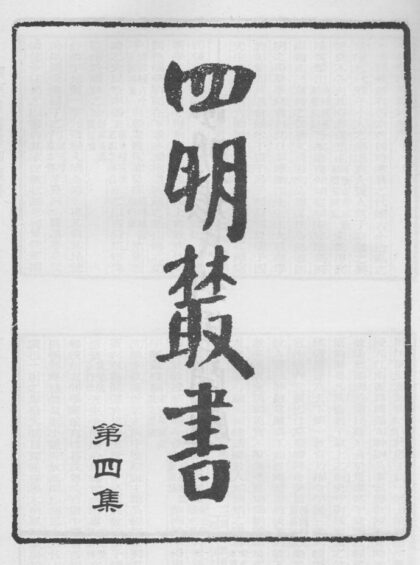 四明叢書
第四集